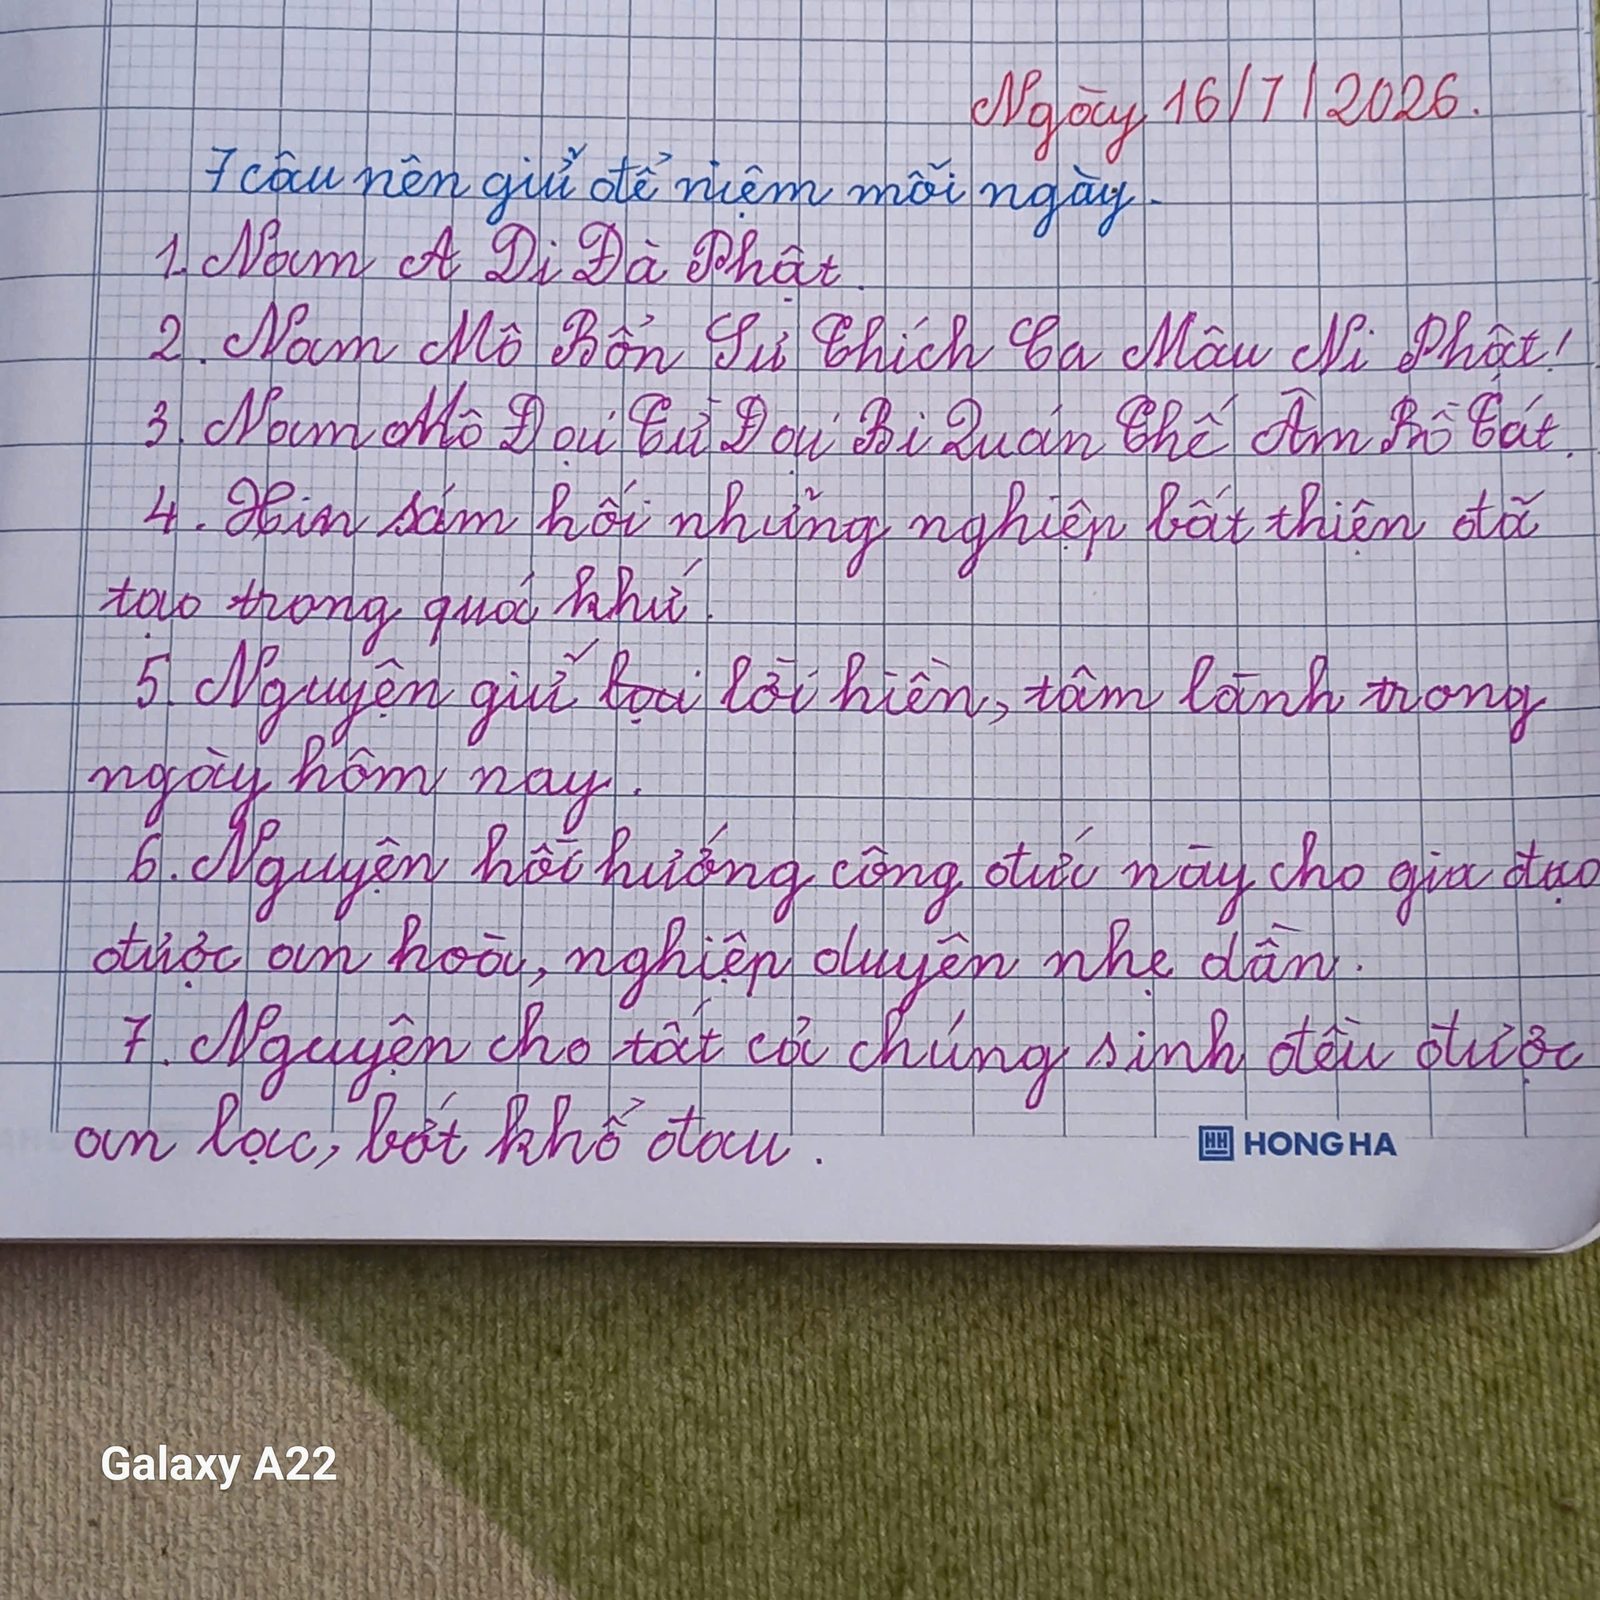 Ngày 16/7/2026.
7 câu nên giữ để niệm mỗi ngày.
1. Nam A Di Đà Phật.
2. Nam Mô Bổn Sư Thích Ca Mâu Ni Phật!
3. Nam Mô Đại Từ Đại Bi Quán Thế Âm Bồ Tát.
4. Xin sám hối những nghiệp bất thiện đã
tạo trong quá khứ.
5. Nguyện giữ lời hiền, tâm lành trong
ngày hôm nay.
6. Nguyện hồi hướng công đức này cho gia đạo
được an hoà, nghiệp duyên nhẹ dần.
7. Nguyện cho tất cả chúng sinh đều được
an lạc, bớt khổ đau.
HONG HA
Galaxy A22